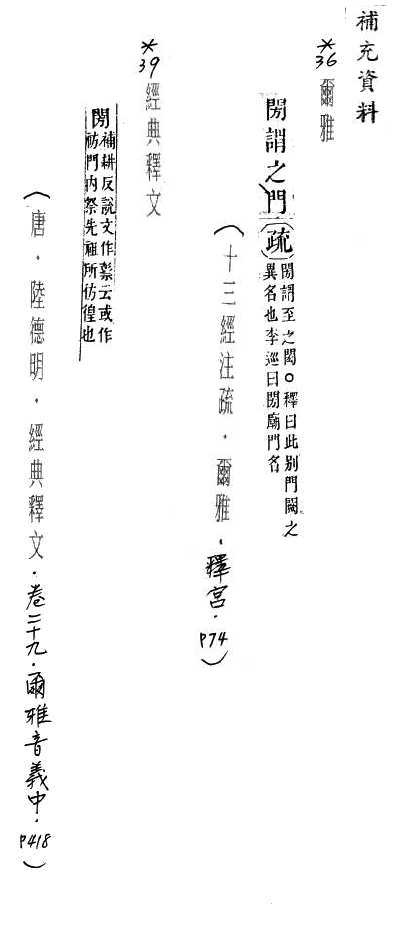 補充資料
*36 爾雅
閍謂之門(疏)閍謂至之閎○釋曰此別門闕之
異名也李巡曰閍廟門名
(十三經注疏．爾雅．釋宮．P74)
*39 經典釋文
閍補耕反說文作䰃云或作
祊門內祭先祖所仿徨也
(唐．陸德明．經典釋文．卷二十九．爾雅音義中．P418)